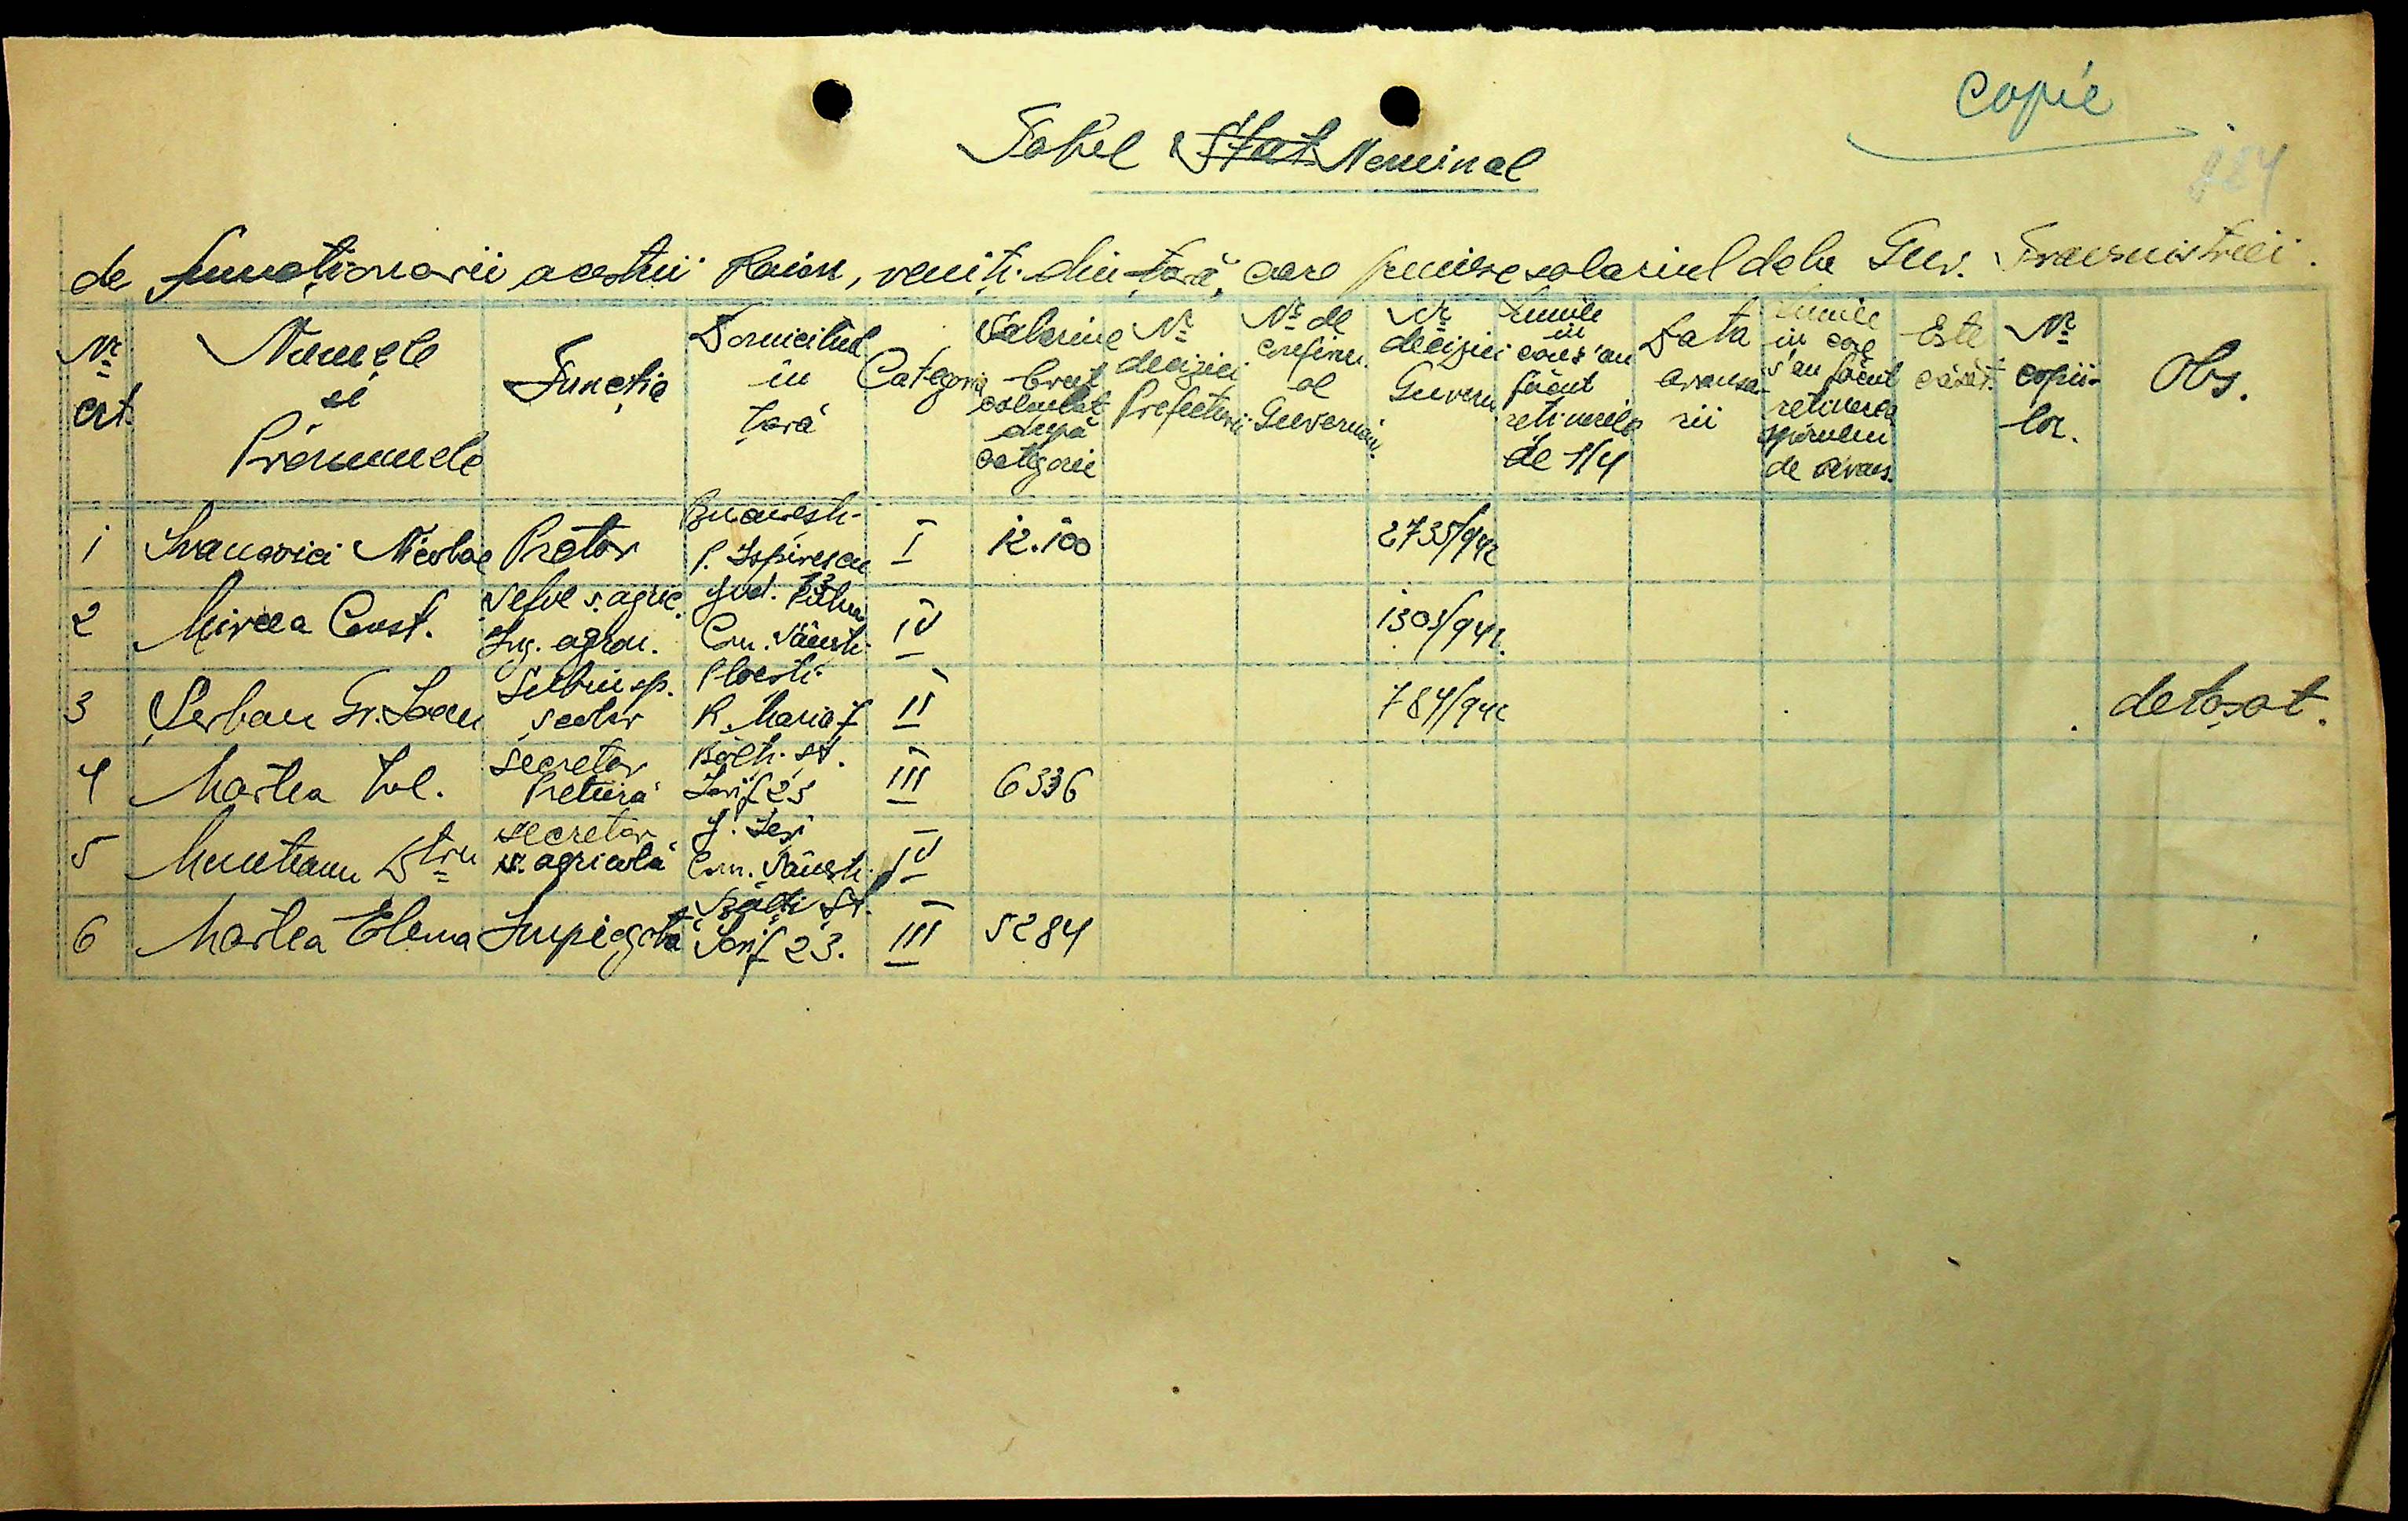 Copie
Tabel Stat Nominal
de funcționarii acestui Raion, veniți din țară, care primesc salariul dela Guv. Transnistriei.
Nr. crt. | Numele și Prenumele | Funcția | Domiciliul în țară | Categoria | Salariul brut calculat după categorie | Nr. deciziei Prefecturii | Nr. de confirm. al Guvernăm. | Nr. deciziei Guvern. | Lunile in care s'au făcut retinerile de 1/4 | Data avansarii | Lunile in care s'au făcut retinerea sporului de avans. | Este căsăt. | Nr. copiilor. | Obs.
1 | Ivanovici Nicolae | Pretor | București P. Ispirescu | I | 12.100 | 2735/942
2 | Mircea Const. | Șeful s. agric. Ing. agron. | Jud. Com. | IV | 1303/942.
3 | Șerban Gr. Ioan | Subinsp. școlar | Ploești R. Maria 7 | II | 784/942 | detașat.
4 | Martea | secretar Pretură | Bălți st. Iosif 23 | III | 6336
5 | Munteanu Dtru | secretar s. agricolă | J. Iași Com. | IV
6 | Martea Elena | Impiegată | Bălți St. Iosif 23. | III | 5284